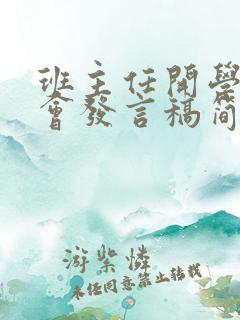 班主任開學
會發言稿简
游紫憐
未任同意禁止转载